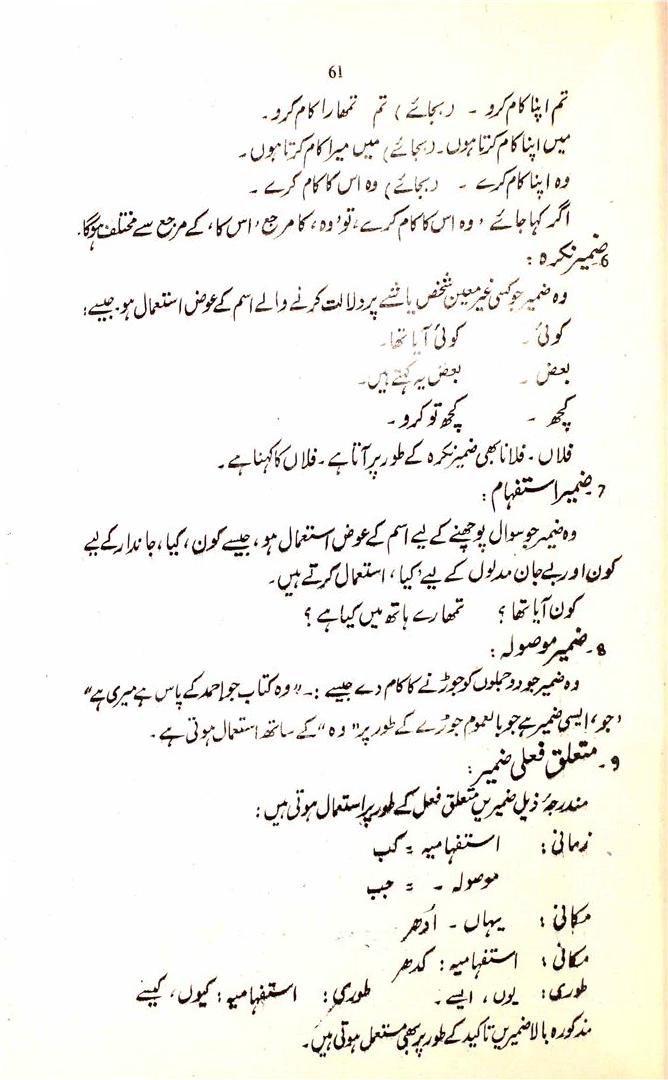 61
تم اپنا کام کرو ۔ (بجائے) تم تمھارا کام کرو ۔
میں اپنا کام کرتا ہوں ۔ (بجائے) میں میرا کام کرتا ہوں ۔
وہ اپنا کام کرے ۔ (بجائے) وہ اس کا کام کرے ۔
اگر کہا جائے 'وہ اس کا کام کرے، تو 'وہ، کا مرجع 'اس کا، کے مرجع سے مختلف ہوگا۔
6۔ ضمیر نکرہ :
وہ ضمیر جو کسی غیر معین شخص یا شے پر دلالت کرنے والے اسم کے عوض استعمال ہو۔ جیسے :
کوئی ۔ کوئی آیا تھا۔
بعض ۔ بعض یہ کہتے ہیں۔
کچھ ۔ کچھ تو کرو ۔
فلاں ۔ فلانا بھی ضمیر نکرہ کے طور پر آتا ہے ۔ فلاں کا کہنا ہے ۔
7۔ ضمیر استفہام :
وہ ضمیر جو سوال پوچھنے کے لیے اسم کے عوض استعمال ہو ، جیسے کون ، کیا ، جاندار کے لیے
کون اور بے جان مدلول کے لیے 'کیا ، استعمال کرتے ہیں ۔
کون آیا تھا ؟ تمھارے ہاتھ میں کیا ہے ؟
8۔ ضمیر موصولہ :
وہ ضمیر جو دو جملوں کو جوڑنے کا کام دے جیسے :۔ "وہ کتاب جو احمد کے پاس ہے میری ہے"
'جو، ایسی ضمیر ہے جو بالعموم جوڑے کے طور پر "وہ" کے ساتھ استعمال ہوتی ہے ۔
9۔ متعلق فعلی ضمیر :
مندرجۂ ذیل ضمیریں متعلق فعل کے طور پر استعمال ہوتی ہیں :
زمانی : استفہامیہ = کب
موصولہ ۔ = جب
مکانی : یہاں ۔ اُدھر
مکانی : استفہامیہ : کدھر
طوری : یوں ، ایسے ۔ طوری : استفہامیہ : کیوں ، کیسے
مذکورہ بالا ضمیریں تاکید کے طور پر بھی مستعمل ہوتی ہیں ۔